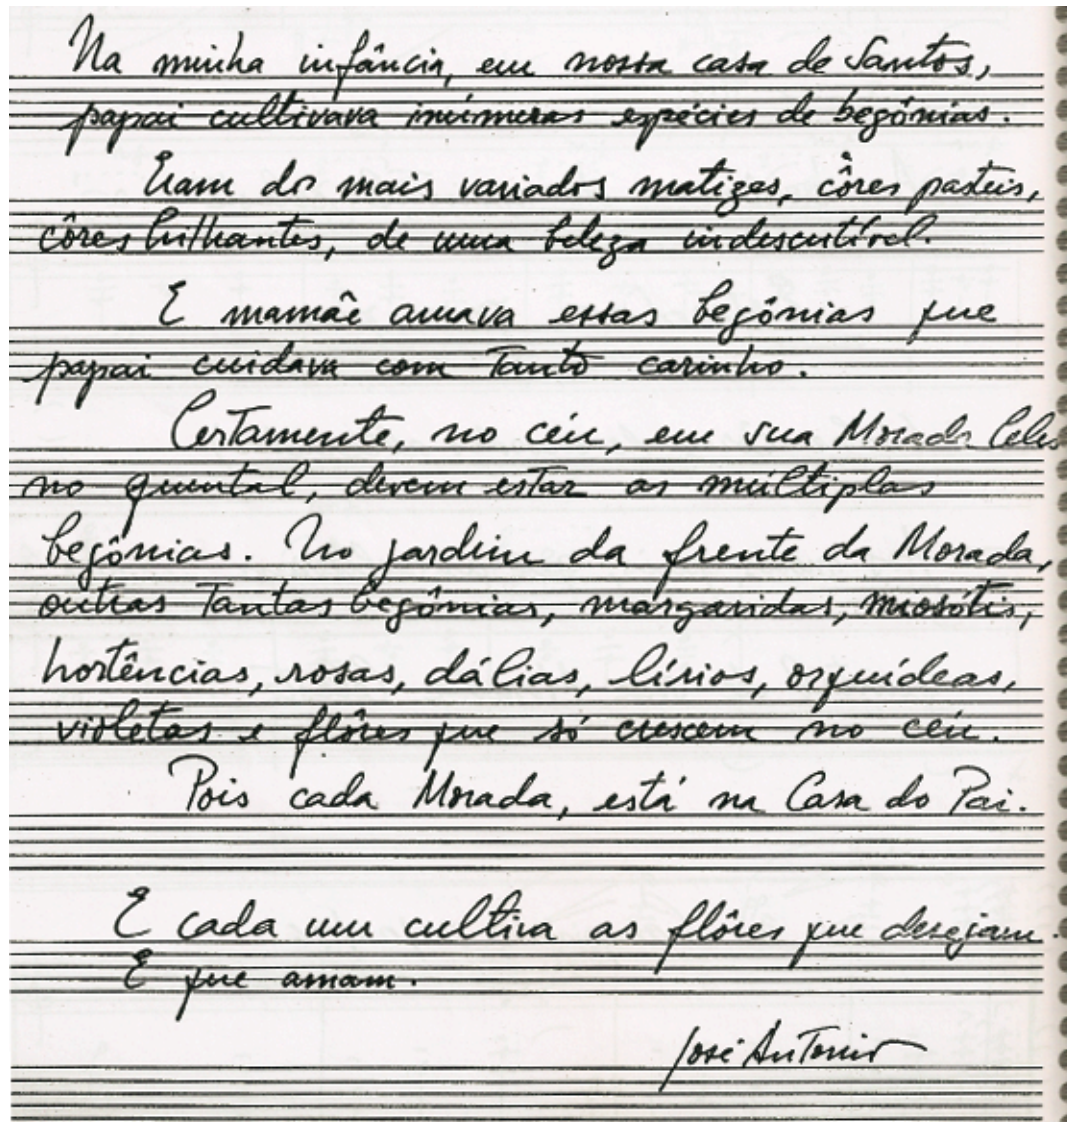 Na minha infância, em nossa casa de Santos,
papai cultivava inúmeras espécies de begônias.
Eram dos mais variados matizes, côres pasteis,
côres brilhantes, de uma beleza indescutível.
E mamãe amava essas begônias que
papai cuidava com tanto carinho.
Certamente, no céu, em sua Morada Celes
no quintal, devem estar as múltiplas
begônias. No jardim da frente da Morada,
outras tantas begônias, margaridas, miosótis,
hortências, rosas, dálias, lírios, orquídeas,
violetas e flôres que só crescem no céu.
Pois cada Morada, está na Casa do Pai.
E cada um cultiva as flôres que desejam.
E que amam.
José Antonio